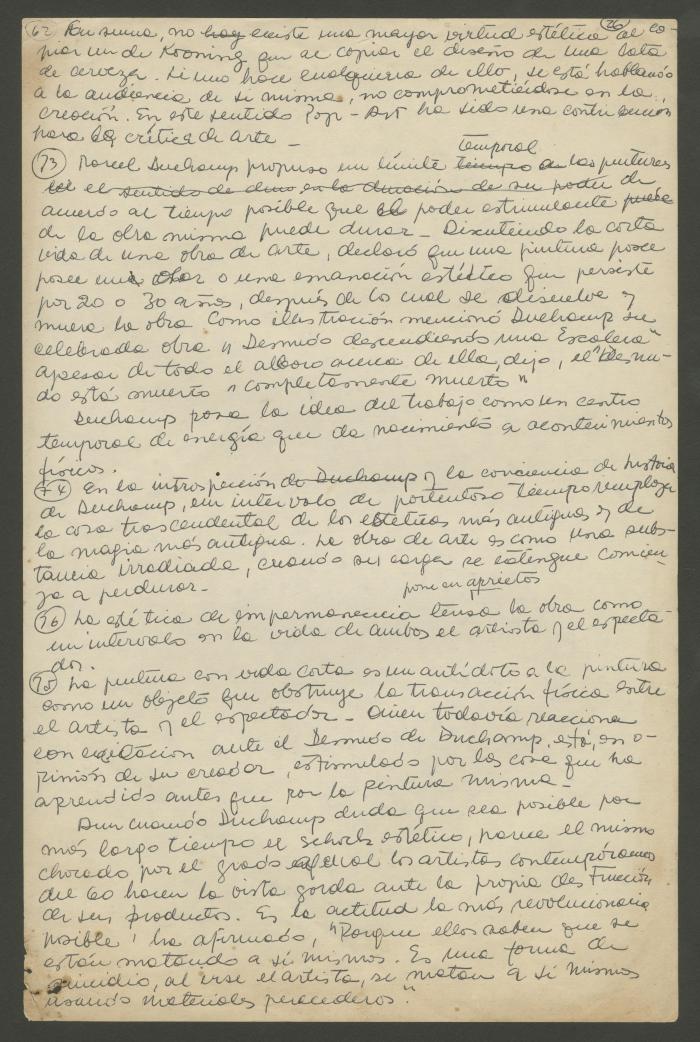 62 En suma, no hay existe una mayor virtud estética al co- 26
piar un de Kooning que al copiar el diseño de una lata
de cerveza. Si uno hace cualquiera de ello, se está hablando
a la audiencia de si misma, no comprometiéndose en la
creación. En este sentido Pop-Art ha sido una contribución
para la crítica de arte —
temporal
73 Marcel Duchamp propuso un límite tiempo de las pinturas
el sentido de duro en la duración de su poder de
acuerdo al tiempo posible que el poder estimulante pueda
de la obra misma puede durar — Discutiendo la corta
vida de una obra de arte, declaró que una pintura posee
posee un olor o una emanación estética que persiste
por 20 o 30 años, después de lo cual se disuelve y
muere la obra Como illustración mencionó Duchamp su
celebrada obra "Desnudo descendiendo una Escalera"
apesar de todo el alboro acerca de ella, dijo, el "Desnu-
do está muerto, completamente muerto"
Duchamp posa la idea del trabajo como un centro
temporal de energía que da nacimiento a acontecimientos
físicos.
74 En la introspección de Duchamp y la conciencia de historia
de Duchamp, un intervalo de portentoso tiempo remplaza
la cosa trascendental de los estéticas más antiguas y de
la magia más antigua. La obra de arte es como una subs-
tancia irradiada, cuando su carga se extingue comien-
za a perdurar.-
pone en aprietos
76 La estética de impermanencia tensa la obra como
un intervalo en la vida de ambos el artista y el especta-
dor.
75 La pintura con vida corta es un antídoto a la pintura
como un objeto que obstruye la transacción física entre
el artista y el espectador — Quien todavía reacciona
con excitación ante el Desnudo de Duchamp, está, en o-
pinión de su creador, estimulado por las cosa que ha
aprendido antes que por la pintura misma —
Aun cuando Duchamp duda que sea posible por
más largo tiempo el schock estético, parece el mismo
chocado por el grado al cual los artistas contemporáneos
del 60 hacen la vista gorda ante la propia des Función
de sus productos. Es la actitud la más revolucionaria
posible' ha afirmado, "Porque ellos saben que se
están matando a sí mismos. Es una forma de
suicidio, al irse el artista, se matan a sí mismos
usando materiales perecederos."